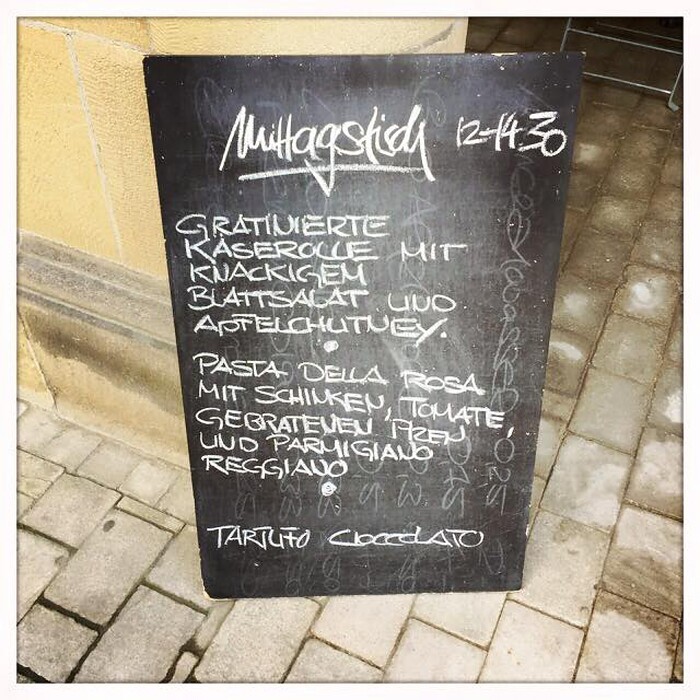 Mittagstisch 12-14.30
GRATINIERTE
KÄSEROLLE MIT
KNACKIGEM
BLATTSALAT UND
APFELCHUTNEY.
PASTA DELLA ROSA
MIT SCHINKEN, TOMATE,
GEBRATENEN
UND PARMIGIANO
REGGIANO
TARTUFO CIOCCOLATO